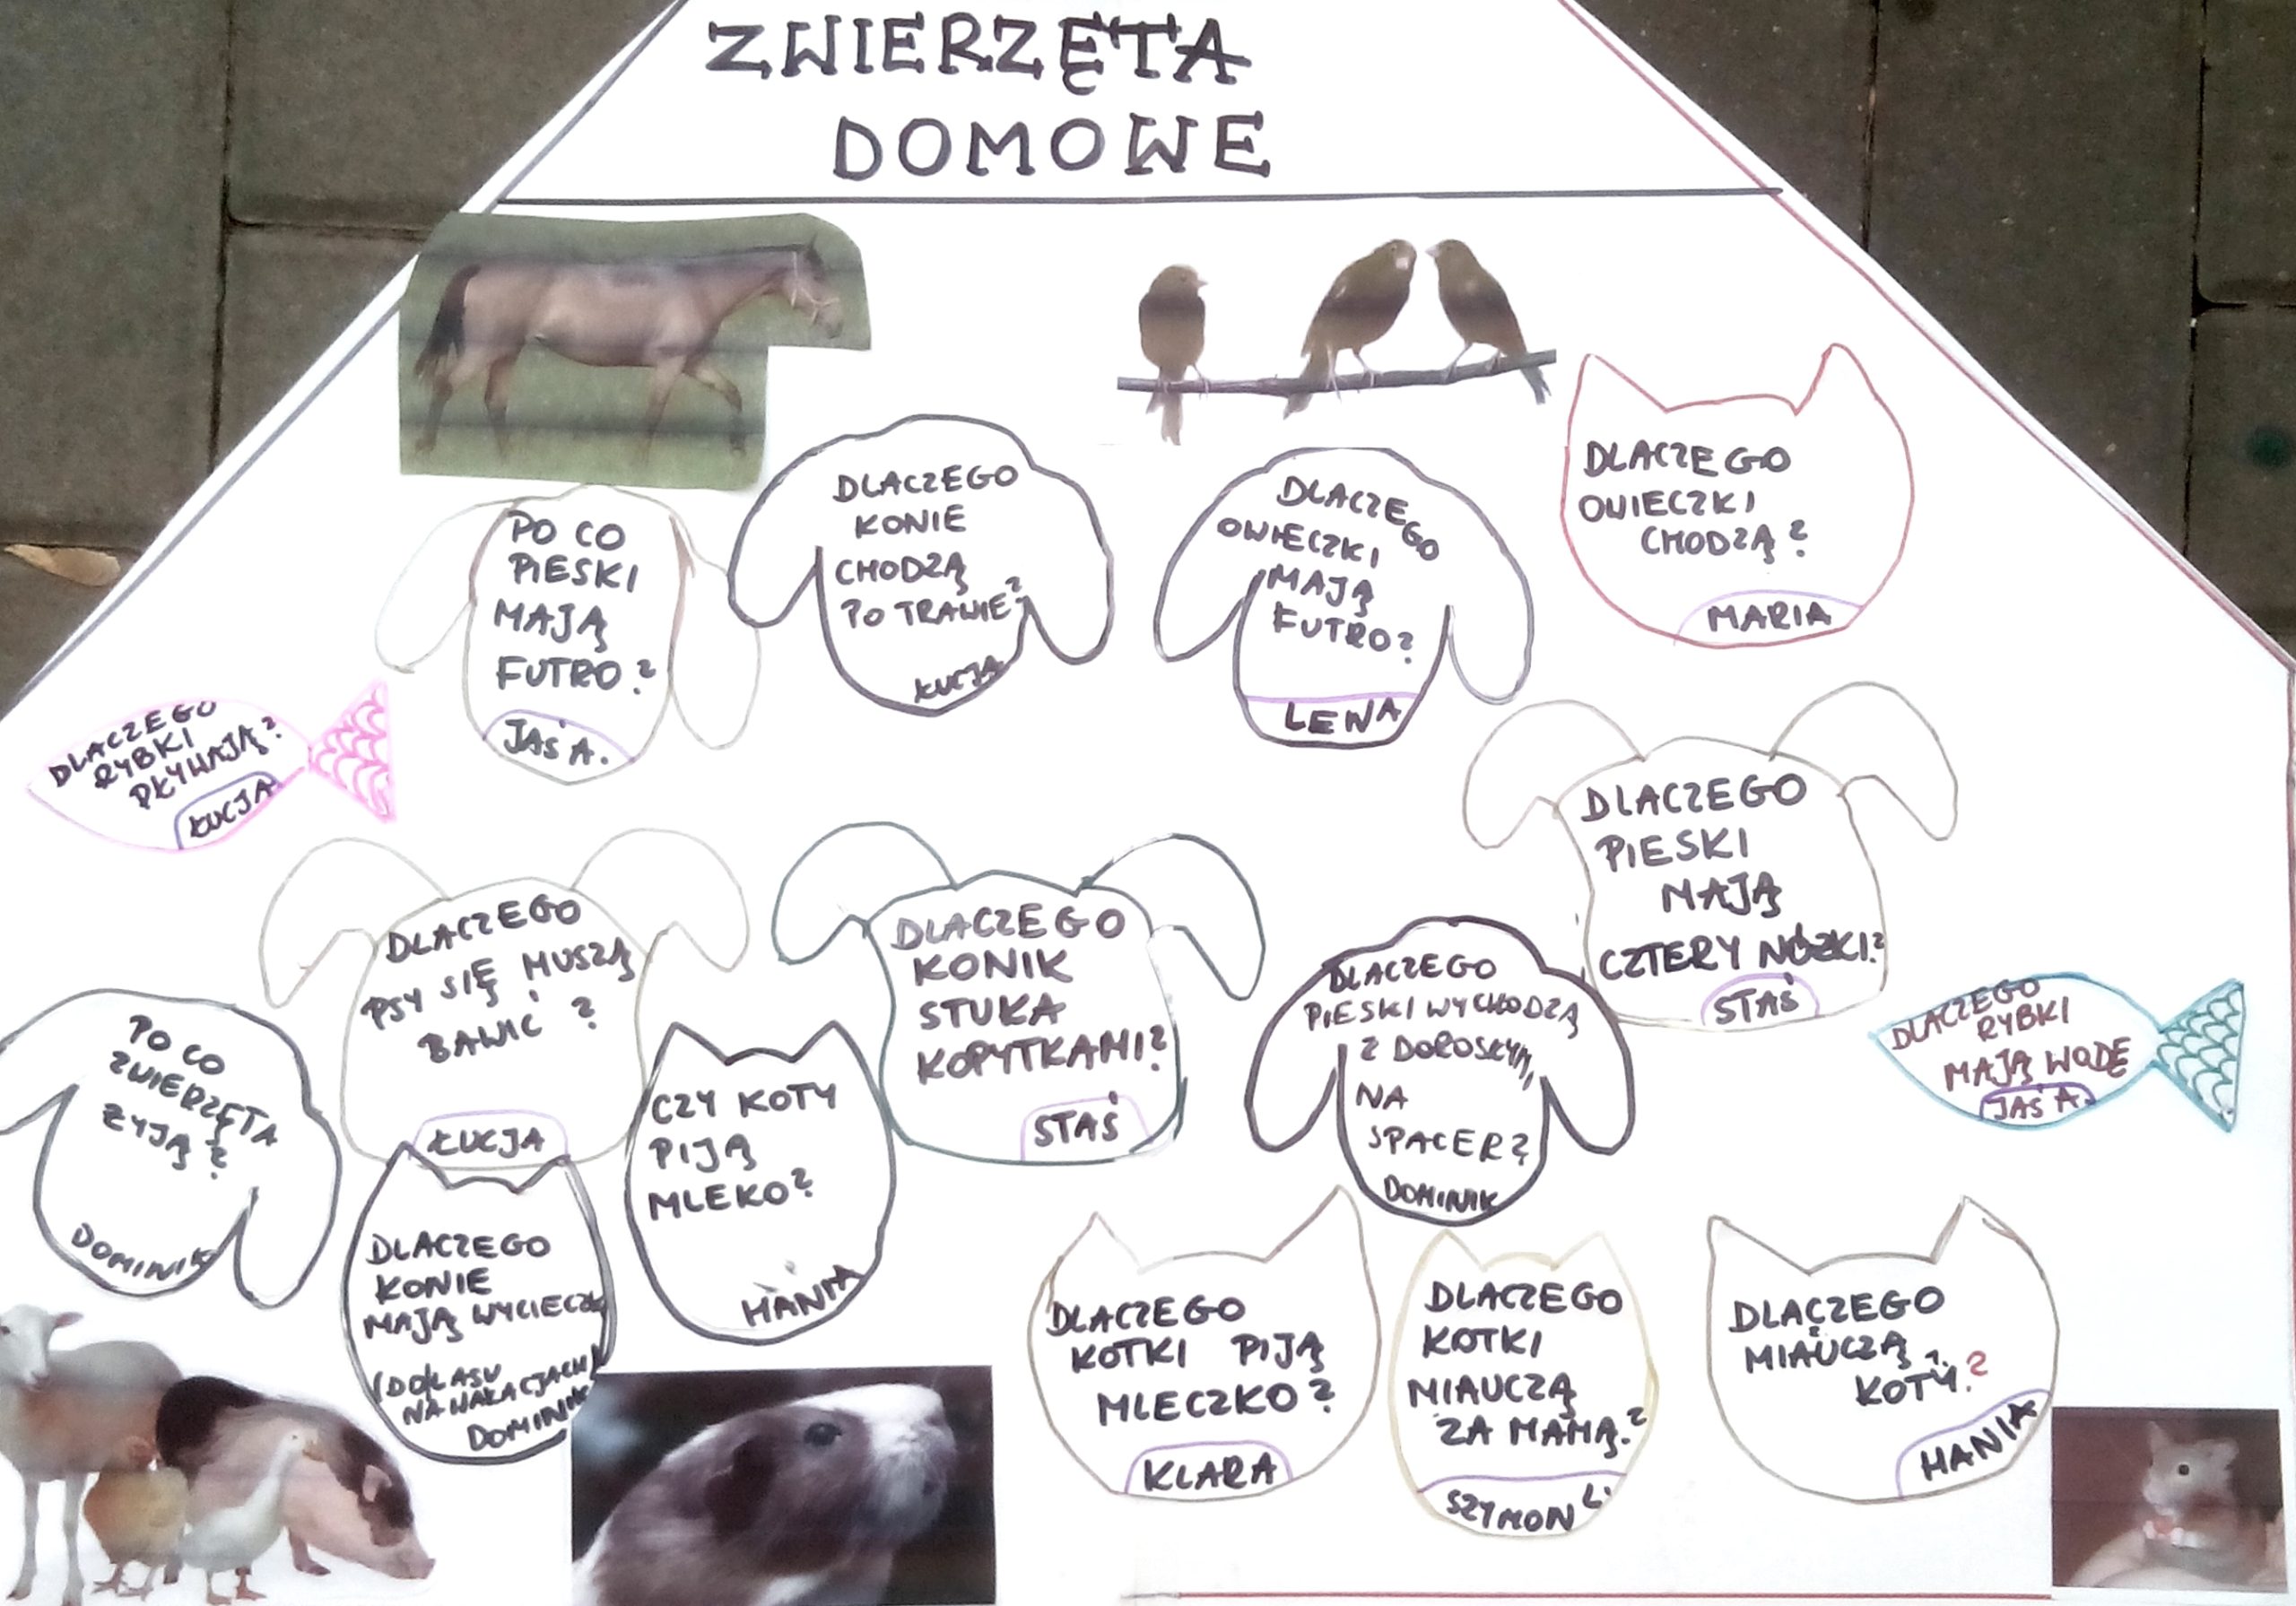 ZWIERZĘTA
DOMOWE
PO CO
PIESKI
MAJĄ
FUTRO?
JAŚ A.
DLACZEGO
KONIE
CHODZĄ
PO TRAWIE?
ŁUCJA
DLACZEGO
OWIECZKI
MAJĄ
FUTRO?
LEWA
DLACZEGO
OWIECZKI
CHODZĄ?
MARIA
DLACZEGO
RYBKI
PŁYWAJĄ?
ŁUCJA
DLACZEGO
PIESKI
MAJĄ
CZTERY NÓŻKI?
STAŚ
DLACZEGO
PSY SIĘ MUSZĄ
BAWIĆ?
ŁUCJA
DLACZEGO
KONIK
STUKA
KOPYTKAMI?
STAŚ
DLACZEGO
PIESKI WYCHODZĄ
Z DOROSŁYMI
NA
SPACER?
DOMINIK
DLACZEGO
RYBKI
MAJĄ WODĘ
JAŚ A.
PO CO
ZWIERZĘTA
ŻYJĄ?
DOMINIK
CZY KOTY
PIJĄ
MLEKO?
HANIA
DLACZEGO
KONIE
MAJĄ WYCIECZK
(DO LASU
NA WAKACJACH)
DOMINIK
DLACZEGO
KOTKI PIJĄ
MLECZKO?
KLARA
DLACZEGO
KOTKI
MIAUCZĄ
ZA MAMĄ?
SZYMON L.
DLACZEGO
MIAUCZĄ
KOTY?
HANIA